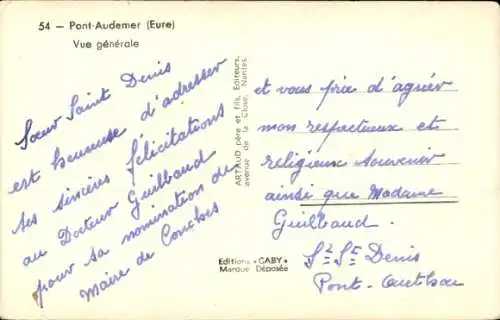 54 — Pont-Audemer (Eure)
Vue générale
Sœur Saint Denis
est heureuse d'adresser
ses sincères félicitations
au Docteur Guilbaud
pour sa nomination de
Maire de Conches
ARTAUD père et fils, Éditeurs,
avenue de la Close, Nantes
Editions "GABY"
Marque Déposée
et vous prie d'agréer
mon respectueux et
religieux souvenir
ainsi que Madame
Guilbaud.
Sr St Denis
Pont-